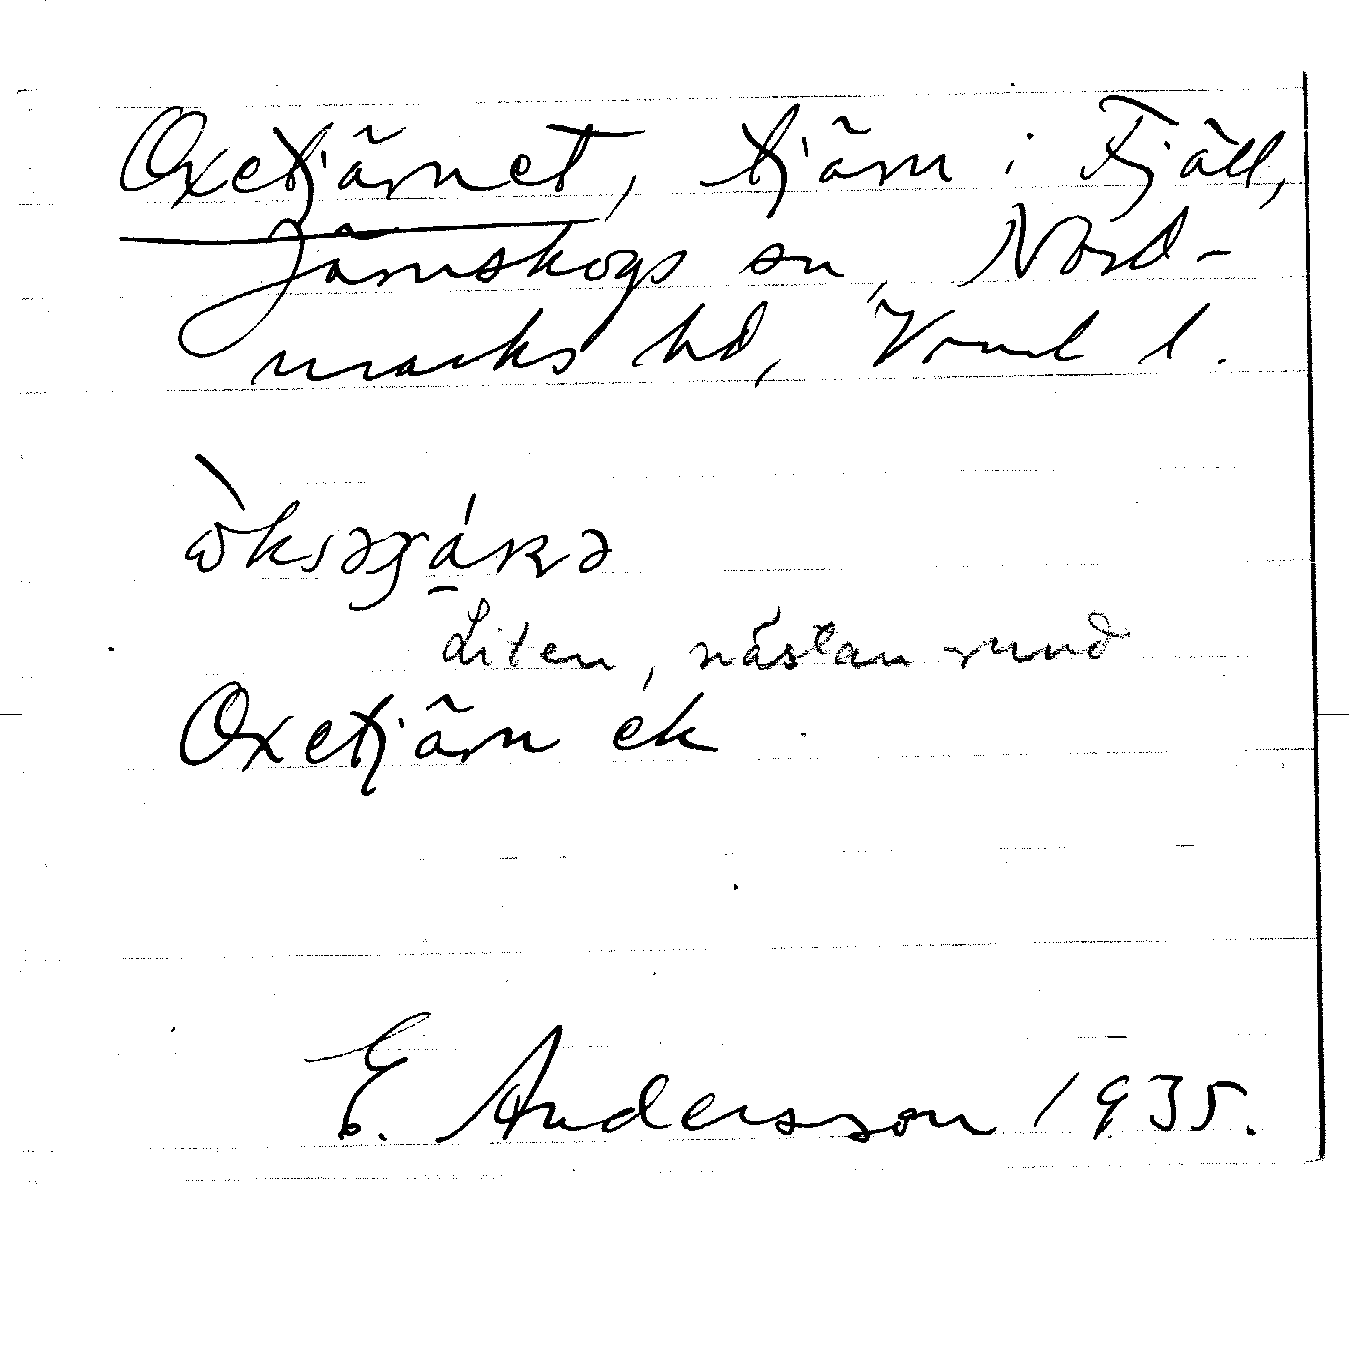 Oxetjärnet, tjärn i Fjäll,
Järnskogs sn, Nord-
marks hd, Vrml l.
Liten, nästan rund
Oxetjärn ek
E. Andersson 1935.